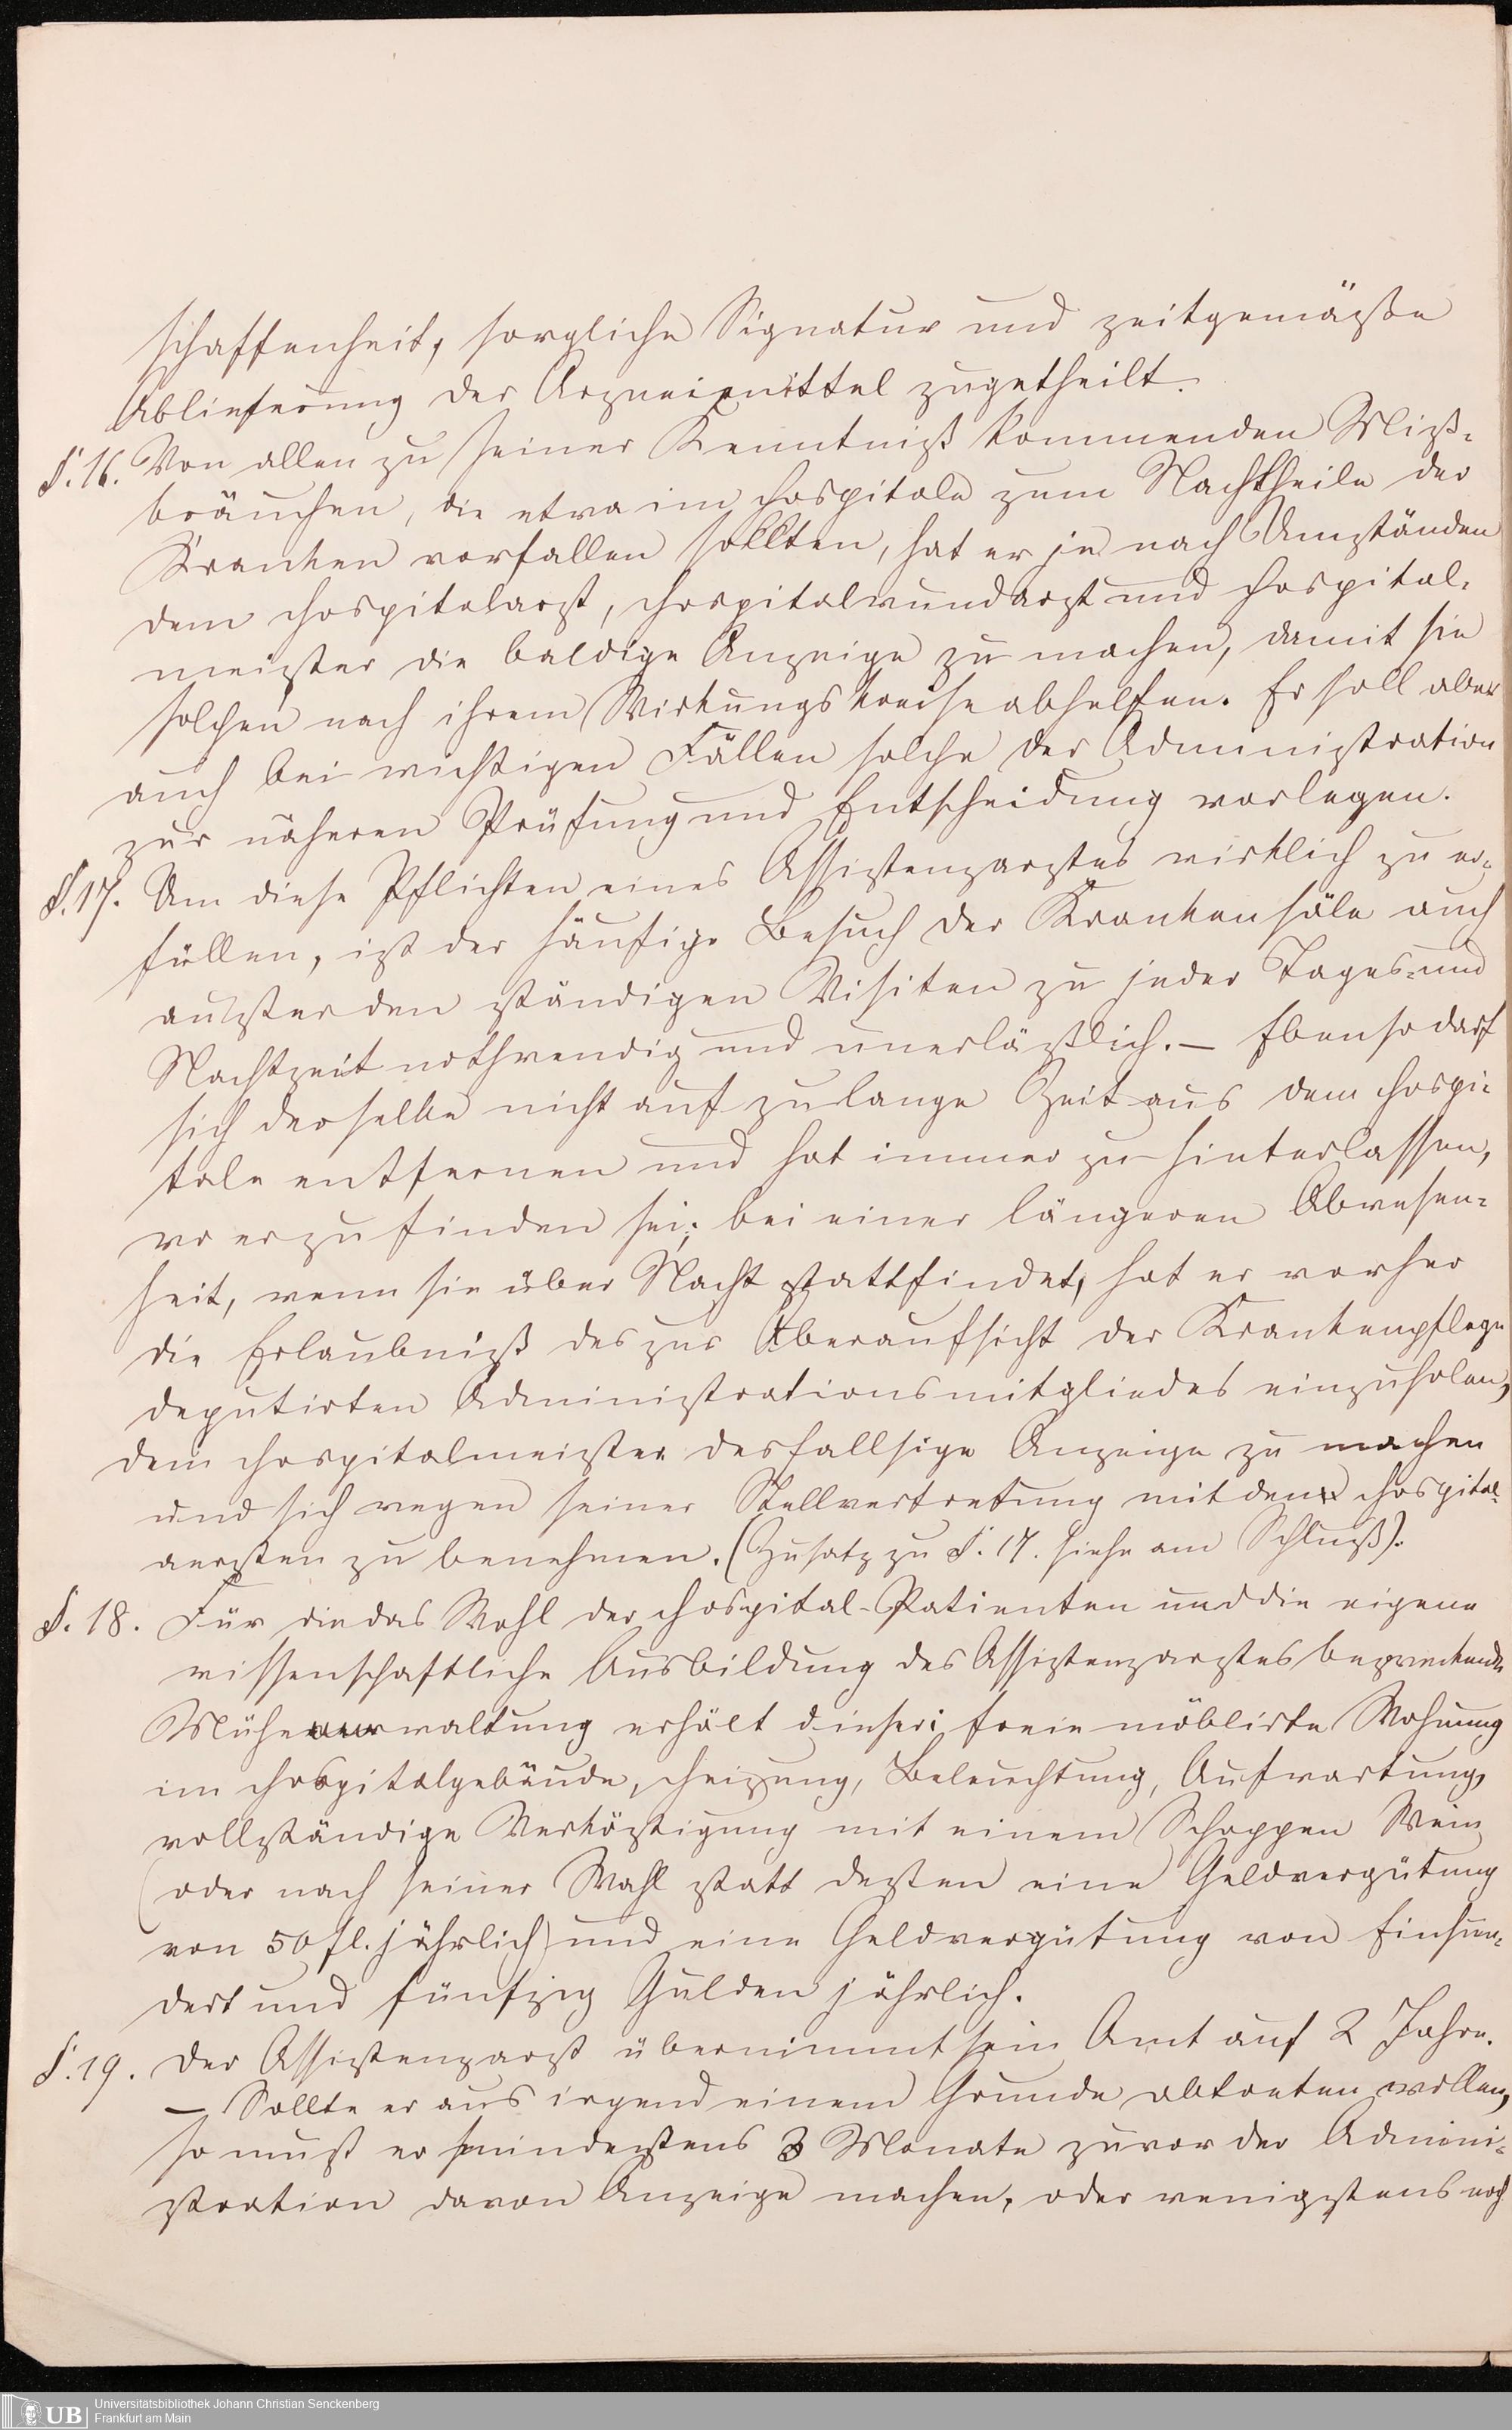 schaffenheit, sorgliche Signatur und zeitgemäße
Ablieferung der Arzneimittel zugetheilt.
§. 16. Von allen zu seiner Kenntniß kommenden Miß-
bräuchen, die etwa im Hospitale zum Nachtheile der
Kranken vorfallen sollten, hat er je nach Umständen
dem Hospitalarzt, Hospitalwundarzt und Hospital-
meister die baldige Anzeige zu machen, damit sie
solchen nach ihrem Wirkungskreise abhelfen. Er soll aber
auch bei wichtigen Fällen solche der Administration
zur näheren Prüfung und Entscheidung vorlegen.
§. 17. Um diese Pflichten eines Assistenzarztes wirklich zu er-
füllen, ist der häufige Besuch der Krankensäle auch
ausser den ständigen Visiten zu jeder Tages- und
Nachtzeit nothwendig und unerläßlich. — Ebenso darf
sich derselbe nicht auf zu lange Zeit aus dem Hospi-
tale entfernen und hat immer zu hinterlassen,
wo er zu finden sei; bei einer längeren Abwesen-
heit, wenn sie über Nacht stattfindet, hat er vorher
die Erlaubniß des zur Oberaufsicht der Krankenpflege
deputirten Administrationsmitgliedes einzuholen,
dem Hospitalmeister desfallsige Anzeige zu machen
und sich wegen seiner Stellvertretung mit den Hospital-
aerzten zu benehmen. (Zusatz zu §. 17. siehe am Schluß).
§. 18. Für die das Wohl der Hospital-Patienten und die eigene
wissenschaftliche Ausbildung des Assistenzarztes bezweckende
Mühewaltung erhält dieser: freie möblirte Wohnung
im Hospitalgebäude, Heizung, Beleuchtung, Aufwartung,
vollständige Verköstigung mit einem Schoppen Wein
(oder nach seiner Wahl statt dessen eine Geldvergütung
von 50 fl. jährlich) und eine Geldvergütung von Einhun-
dert und fünfzig Gulden jährlich.
§. 19. Der Assistenzarzt übernimmt sein Amt auf 2 Jahre.
— Sollte er aus irgend einem Grunde abtreten wollen,
so muß er mindestens 3 Monate zuvor der Admini-
stration davon Anzeige machen, oder wenigstens noch
UB Universitätsbibliothek Johann Christian Senckenberg
Frankfurt am Main